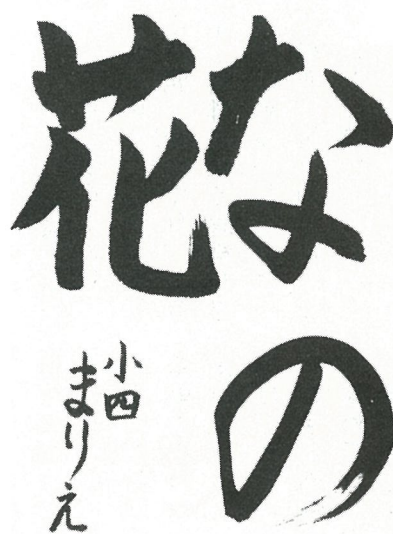 なの
花
小四
まりえ